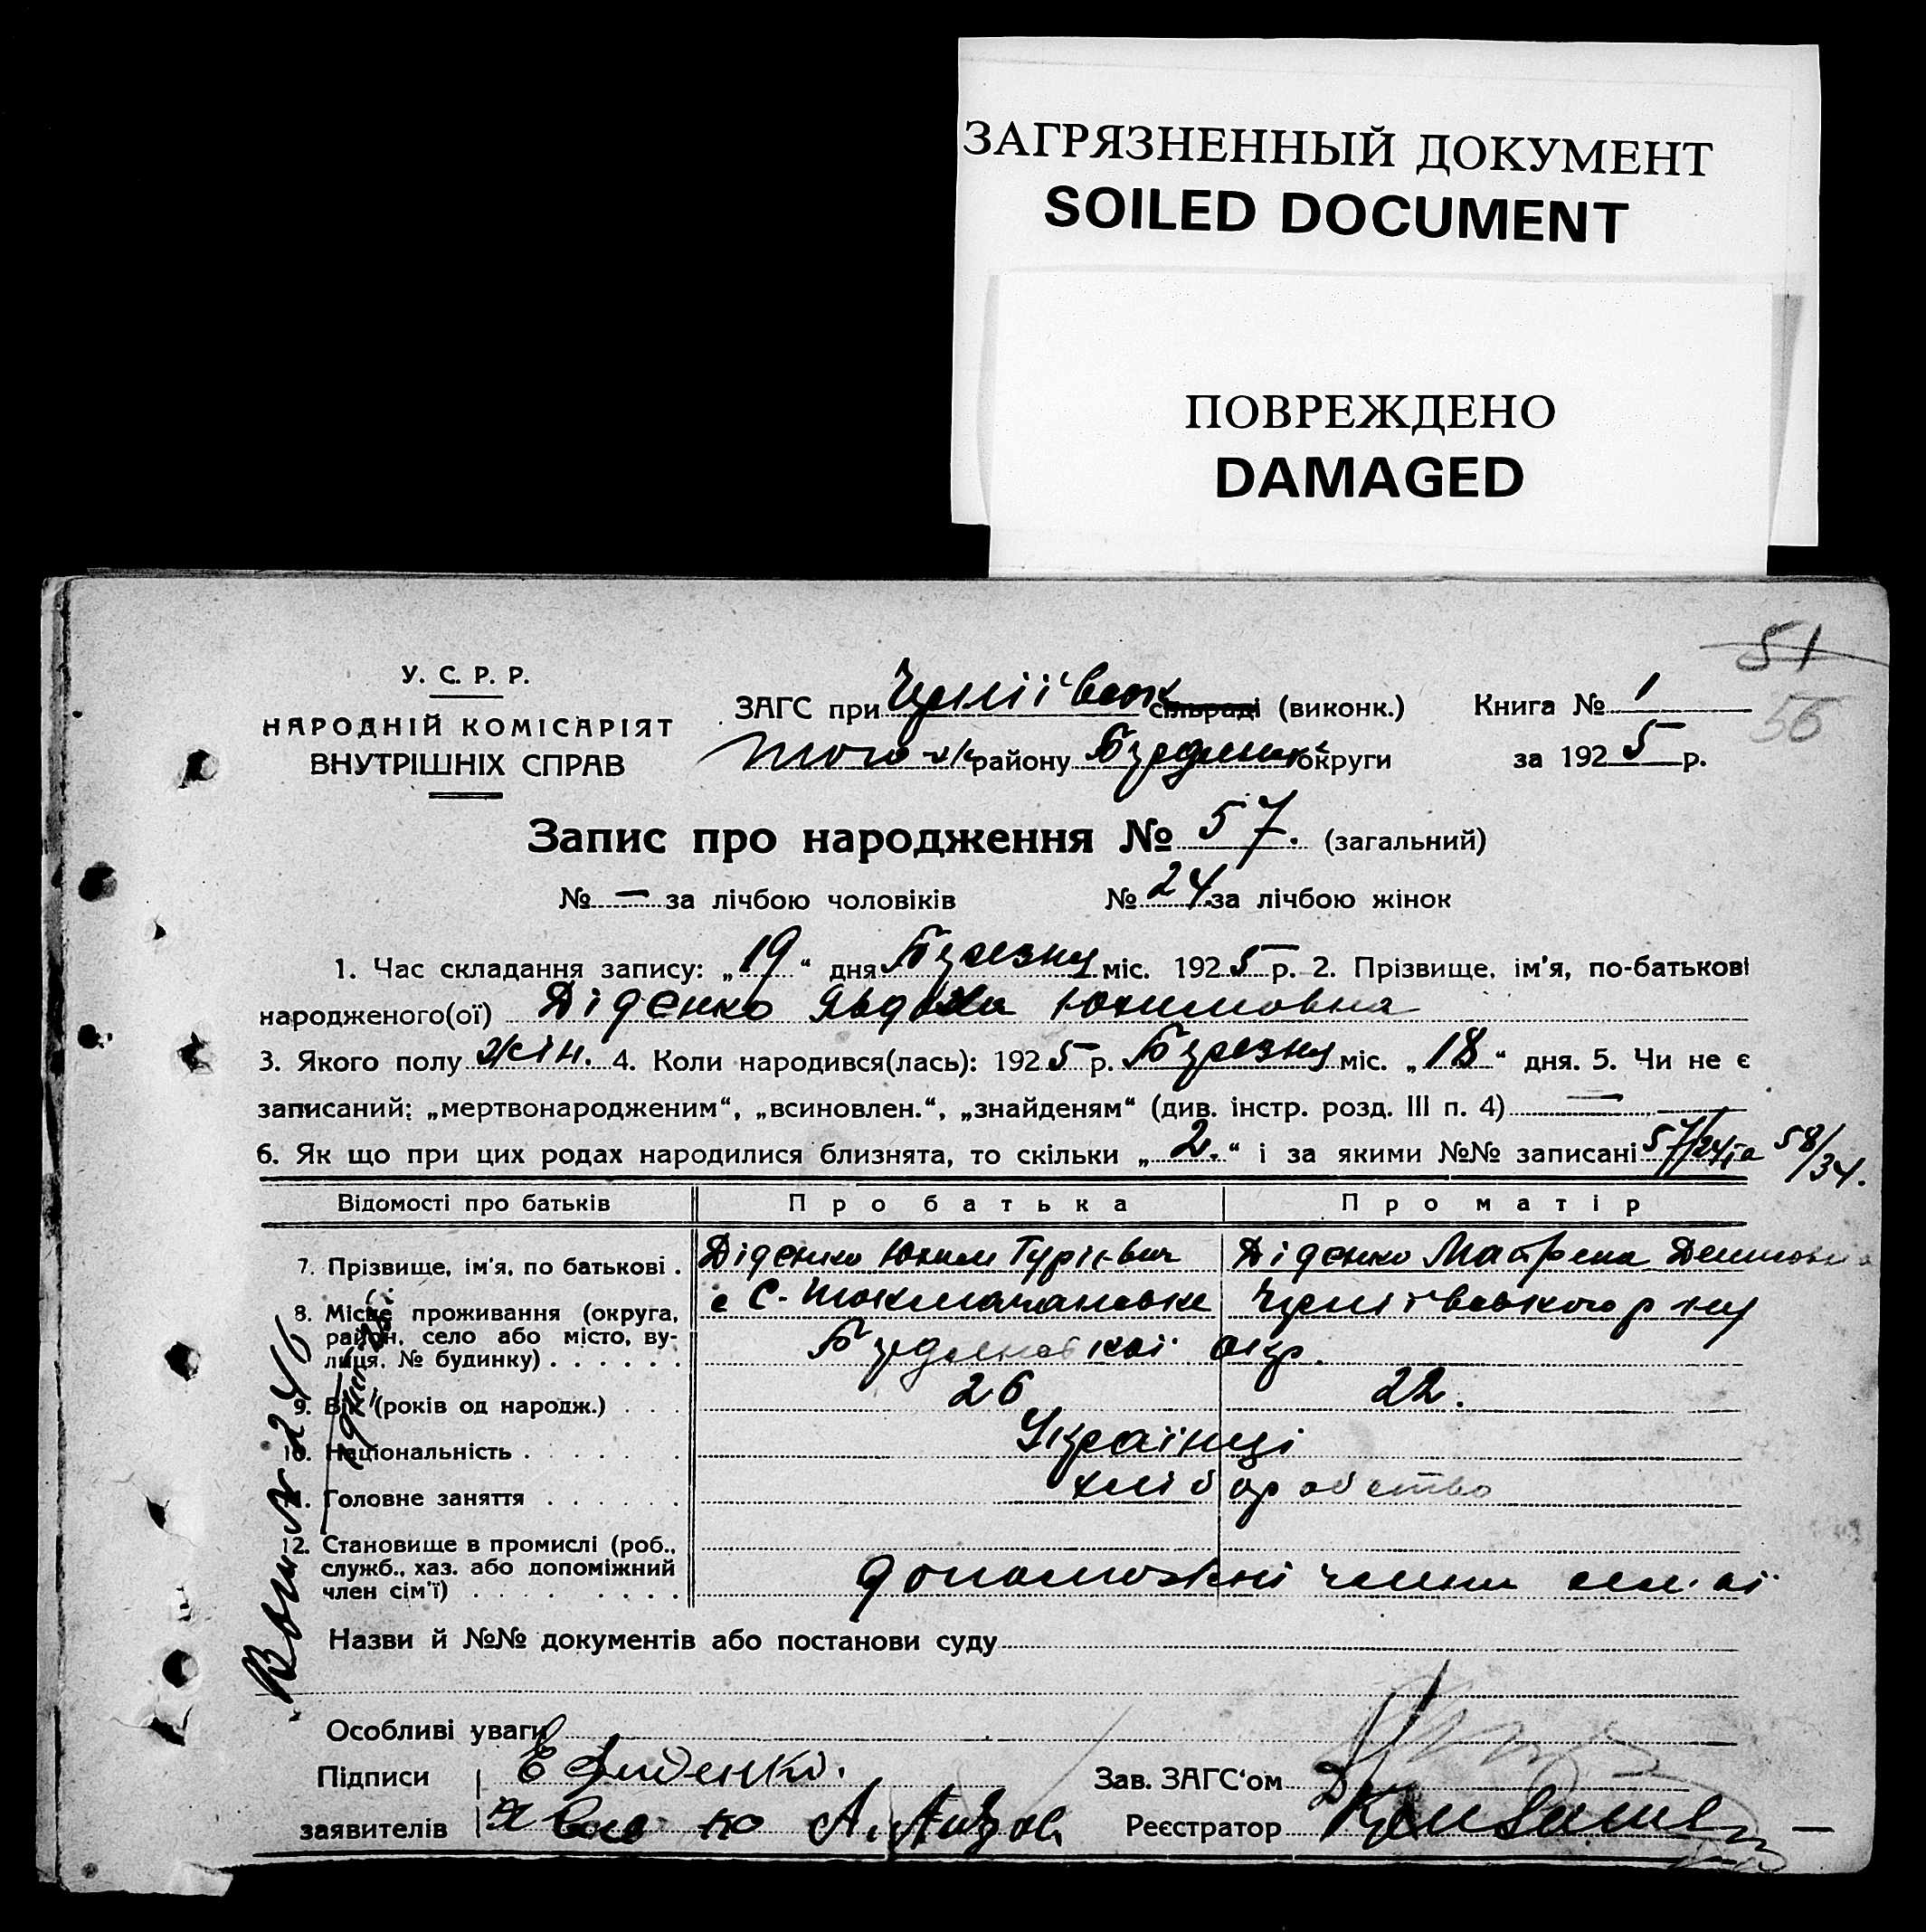 ЗАГРЯЗНЕННЫЙ ДОКУМЕНТ
SOILED DOCUMENT
ПОВРЕЖДЕНО
DAMAGED
51
56
У. С. Р. Р.
НАРОДНІЙ КОМІСАРІЯТ
ВНУТРІШНІХ СПРАВ
ЗАГС при сільраді (виконк.) Книга № 1
того ж району округи за 1925 р.
Запис про народження № 57. (загальний)
№ — за лічбою чоловіків № 24 за лічбою жінок
1. Час складання запису: „19“ дня Березня міс. 1925 р. 2. Прізвище, ім'я, по-батькові
народженого(ої) Діденко Явдоха Юхимовна
3. Якого полу жін. 4. Коли народився(лась): 1925 р. Березня міс. „18“ дня. 5. Чи не є
записаний: „мертвонародженим“, „всиновлен.“, „знайденям“ (див. інстр. розд. III п. 4) —
6. Як що при цих родах народилися близнята, то скільки „2.“ і за якими №№ записані 57/24 та 58/34.
Відомості про батьків Про батька Про матір
7. Прізвище, ім'я, по батькові . Діденко Юхим Діденко Мотрена
8. Місце проживання (округа, район, село або місто, вулиця, № будинку) . . . . . . с С-Токмачанське окр.
9. Вік (років од народж.) . . . 26 22.
10. Національність . . . . . . Українці
11. Головне заняття . . . . . . хліборобство
12. Становище в промислі (роб., служб., хаз. або допоміжний член сім'ї) . . . . . . допоможні члени
Назви й №№ документів або постанови суду
Особливі уваги
Підписи Е Диденко. Зав. ЗАГС'ом
заявителів А. Реєстратор